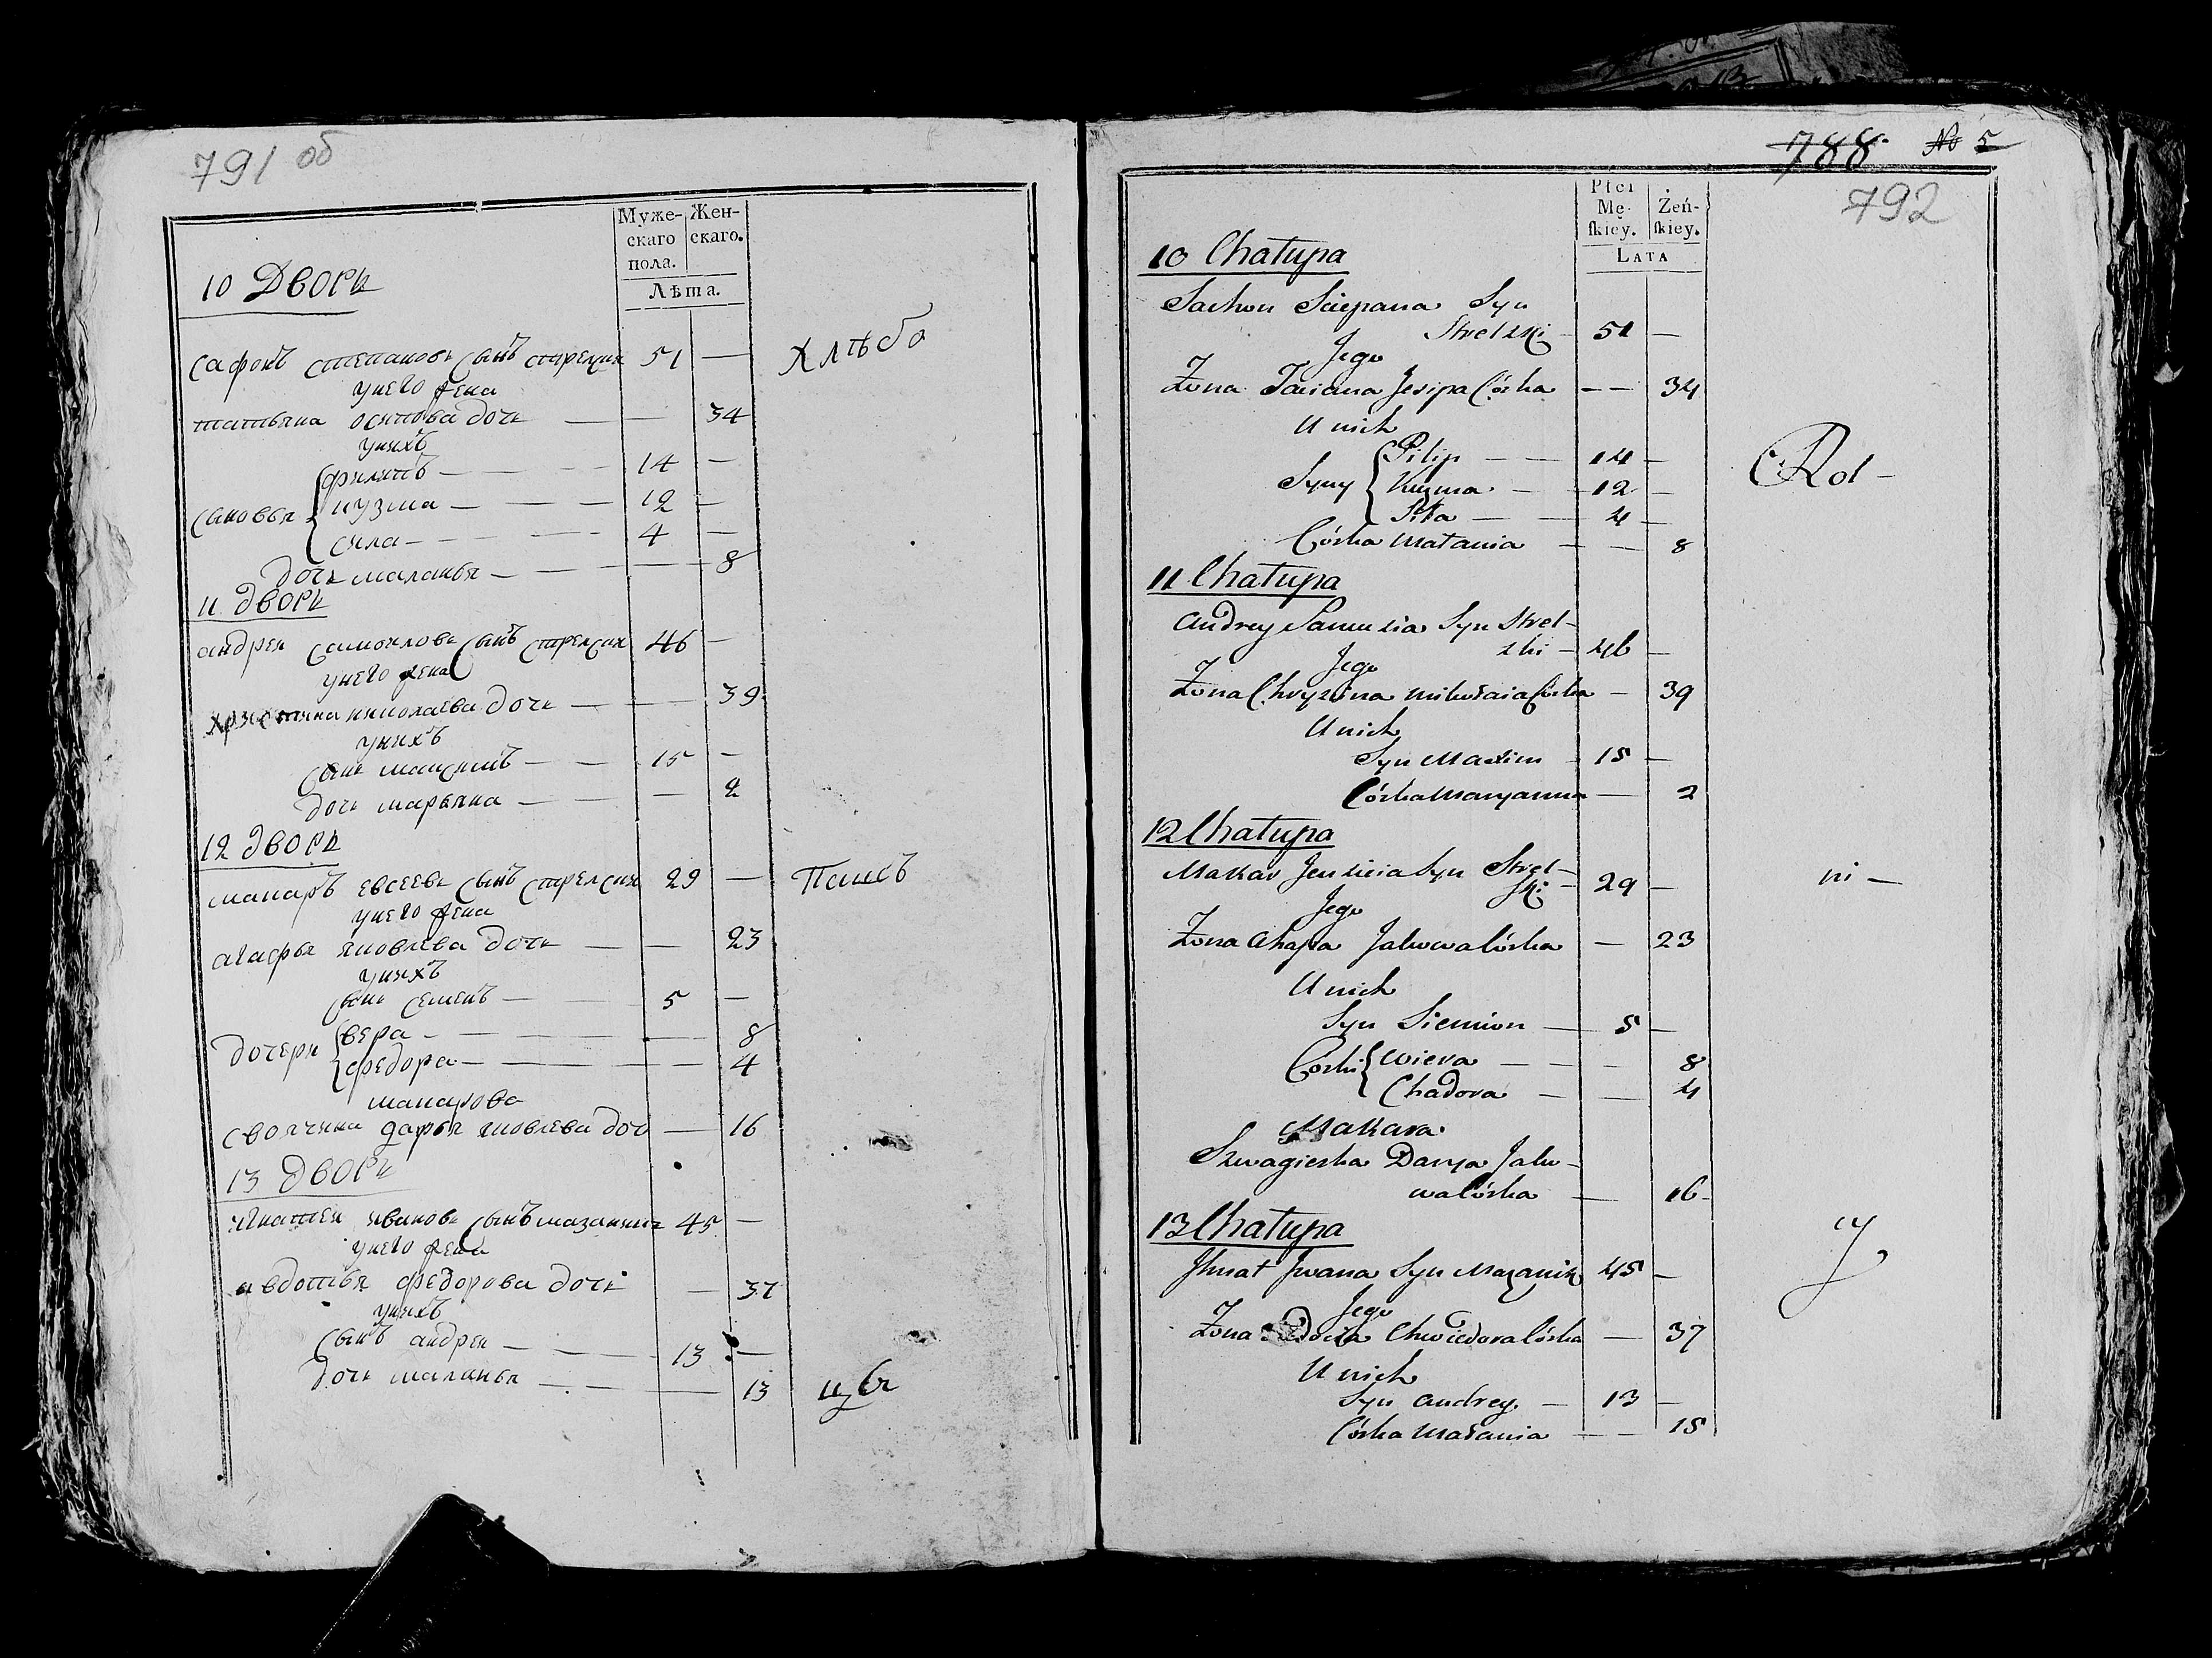 791 об
Муже- Жен-
скаго скаго.
пола.
Лѣта.
10 Дворъ
Сафонъ Степановъ сынъ Стрелски 51 —
у него жена
татьяна осипова дочь — — 34
у нихъ
сыновья { филипъ — 14 —
кузма — 12 —
сила — 4 —
дочь маланья — — 8
хлѣбо
11 дворъ
андрей самойловъ сынъ стрелски 46 —
у него жена
христина николаева дочь — — 39
у нихъ
сынъ максимъ — 15 —
дочь марьяна — — 2
12 дворъ
макаръ евсеевъ сынъ стрелски 29 — Пашеъ
у него жена
агафья яковлева дочь — — 23
у нихъ
сынъ семенъ — 5 —
дочери { вера — — 8
федора — — 4
макарова
своячина дарья яковлева доч — 16
13 дворъ
игнатей ивановъ сынъ мазаникъ 45 —
у него жена
авдотья федорова дочь — 37
у нихъ
сынъ андрей — 13 —
дочь маланья — — 13
788 № 5
792
Płci
Mę- Żeń-
skiey. skiey.
LATA
10 Chałupa
Sachon Sciepana Syn
Strelski — 51 —
Jego
Żona Taciana Jesipa Córka — — 34
U nich
Syny { Pilip — — 14 —
Kuzma — 12 —
Siła — 4 —
Córka Małania — — 8
Rol —
11 Chałupa
Andrey Samusia Syn Strel-
ski — 46 —
Jego
Żona Chryzina Mikołaia Córka — 39
U nich
Syn Maxim — 15 —
Córka Maryanna — 2
12 Chałupa
Makar Jeusieia Syn Strel-
ski — 29 —
Jego
Żona Ahapa Jakowa Córka — 23
U nich
Syn Siemion — 5 —
Córki { Wiera — — — 8
Chadora — — 4
Makara
Szwagierka Darya Jako-
wa Córka — — 16
ni —
13 Chałupa
Jhnat Jwana Syn Mazanik 45 —
Jego
Żona Chwiedora Córka — 37
U nich
Syn Andrey. — 13 —
Córka Małania — — 15
cy